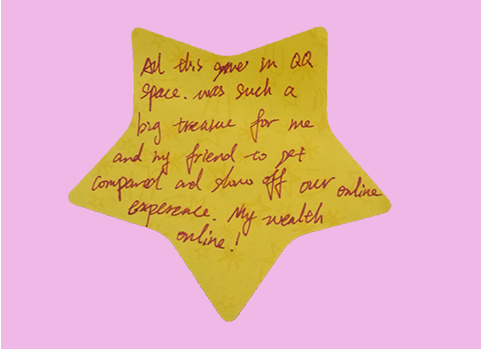 All this saver in QQ
space. was such a
big treasure for me
and my friend to get
compared ad show off our online
experence. My wealth
online!